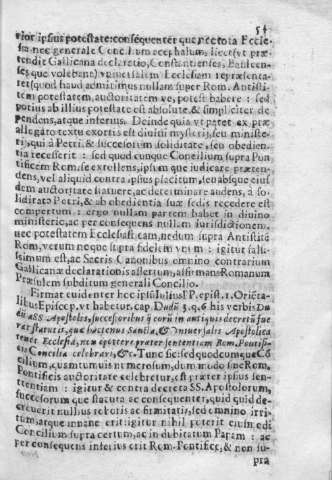 54
rior ipsius potestate: conséquenter quę nec tota Eccle-
sia nec generale Concilium acephalum, licet vt præ-
tendit Gallicana declaratio, Constantienses, Basileen-
ses que volebant) vniuersalem Ecclesiam repræsenta-
ret (quod haud admittimus nullam super Rom. Antisti-
tem potestatem, auctoritatem ve, potest habere : sed
potius ab illius potestate est absolutè, & simpliciter de
pendens, atque inferius. Deinde quia vt patet ex præ
allegato textu exortis est diuini mysterij, seu ministe-
rij, qui à Petri, & succesorum soliditate, seu obedien-
tia recesserit : sed quod cunque Concilium supra Pon
tificem Rom. se extollens, ipsum que iudicare præten-
dens, vel aliquid contra ipsius placitum, seu absque eius
dem auctoritate statuere, ac determinare audens, à so-
liditate Petri, & ab obedientia suæ sedis recedere est
compertum : ergo nullam partem habet in diuino
ministerio, ac per consequens nullam iurisdictionem,
nec potestatem Ecclesiasticam, nedum supra Antistitē
Rom. verum neque supra fidelem vnum : igitur falsis-
simum est, ac Sacris Canonibus omnino contrarium
Gallicanæ declarationis assertum, affirmans Romanum
Præsulem subditum generali Concilio.
Firmat euidenter hęc ipsū Iulius I P. epist. 1. Oriēta-
libus Episcop. vt habetur cap. Dudū 5. q. 6 his verbis Du
dū à SS. Apostolis, successoribus q̃ eorū in antiquis decretis fue
rat statutis, quæ hactenus Sancta, & Vniuersalis Apostolica
tenet Ecclesia, non oportere præter sententiam Rom. Pontifi-
cis Concilia celebrari, &c. Tunc sic: sed quodcumque Cō
cilium, quamtumuis numerosum, dum modo sine Rom.
Pontificis auctoritate celebretur, est præter ipsius sen-
tentiam : igitur & contra decreta SS. Apostolorum,
succesorum que statuta ac consequenter, quid quid de-
creuerit nullius roboris ac firmitatis, sed omnino irri-
tum, atque inane erit: igitur nihil poterit eiusmodi
Concilium supra certum, ac indubitatum Papam : ac
per consequens inferius erit Rom. Pontifice, & non su-
pra